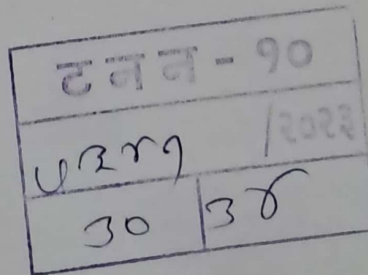 टनन - १०
५३४१ /२०२३
३० ३४